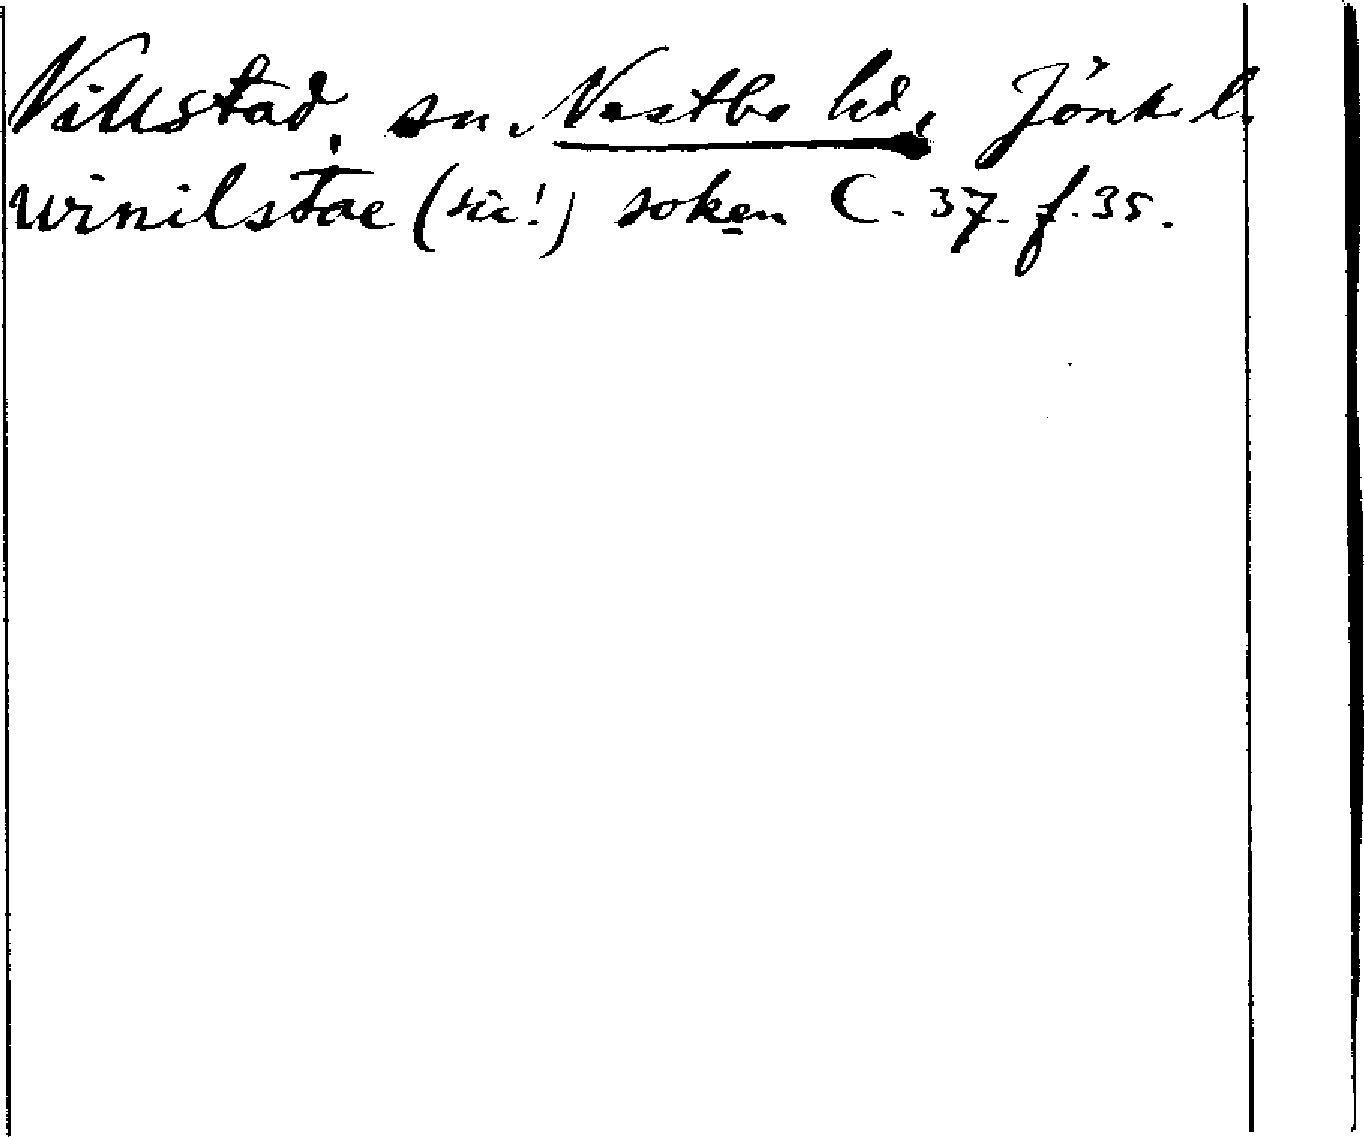 Villstad, sn. Västbo hd, Jönk. l.
winilstae (sic!) soken C. 37. f. 35.